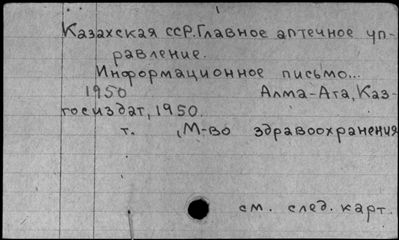 Казахская ССР. Главное аптечное уп-
равление.
Информационное письмо...
1950 Алма-Ата, Каз-
госиздат, 1950.
т. ,М-во здравоохранения
см. след. карт.